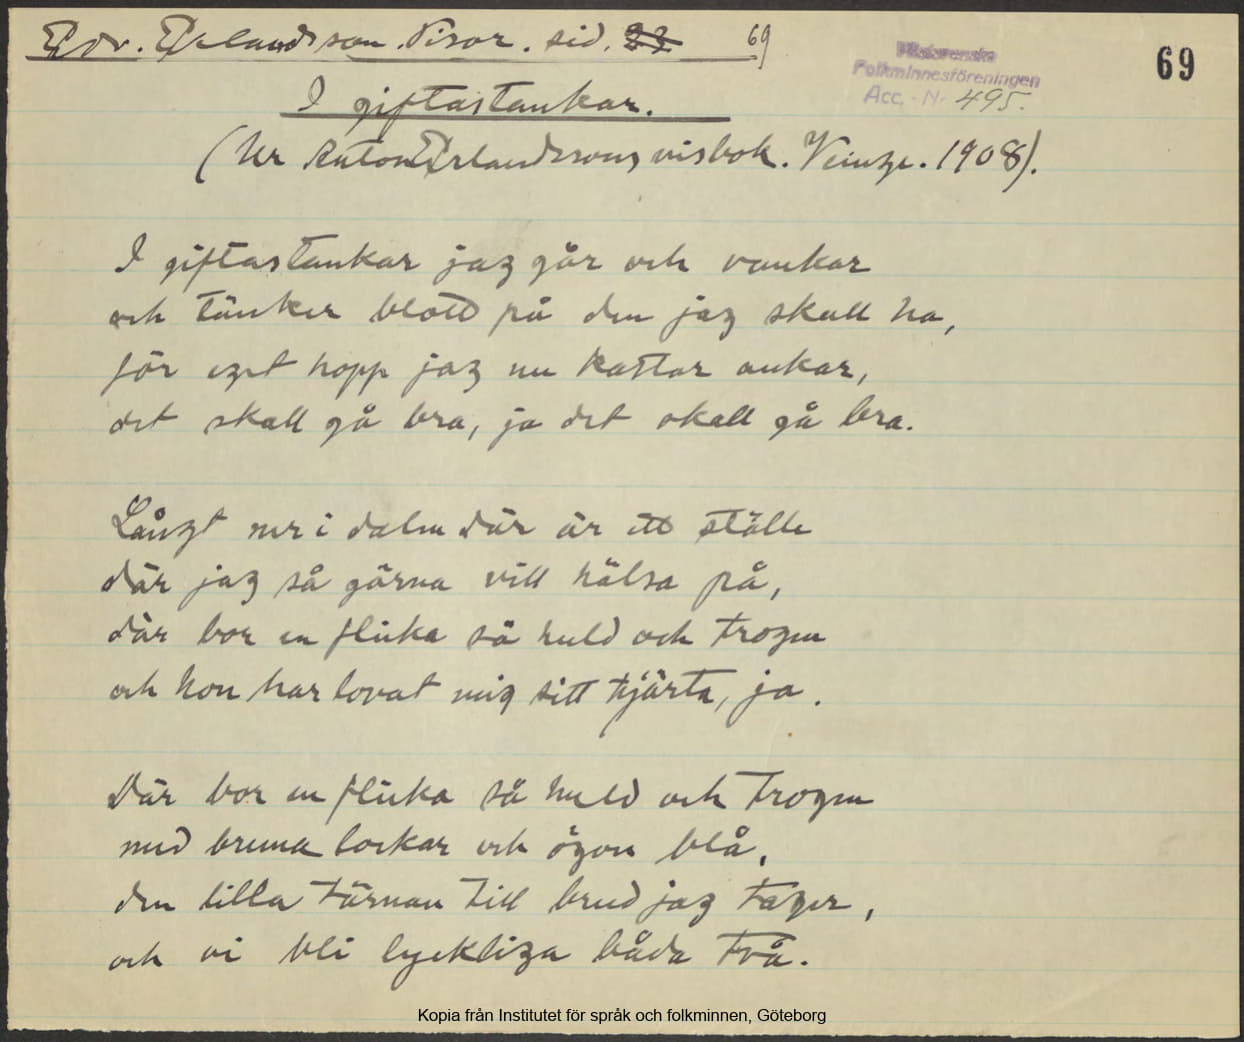 Edv. Erlandsson. Visor. sid. 22 69
69
Västsvenska
Folkminnesföreningen
Acc. - Nr 495.
I giftastankar.
(Ur Anton Erlandssons visbok. Veinge. 1908).
I giftastankar jag går och vankar
och tänker blott på den jag skall ha,
för eget hopp jag nu kastar ankar,
det skall gå bra, ja det skall gå bra.
Långt ner i dalen där är ett ställe
där jag så gärna vill hälsa på,
där bor en flicka så huld och trogen
och hon har lovat mig sitt hjärta, ja.
Där bor en flicka så huld och trogen
med bruna lockar och ögon blå,
den lilla tärnan till brud jag tager,
och vi bli lyckliga båda två.
Kopia från Institutet för språk och folkminnen, Göteborg